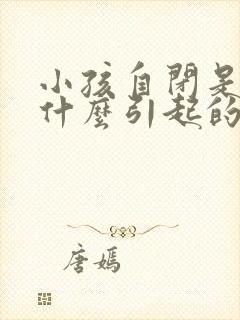 小孩自閉是
什麼引起的
唐嫣